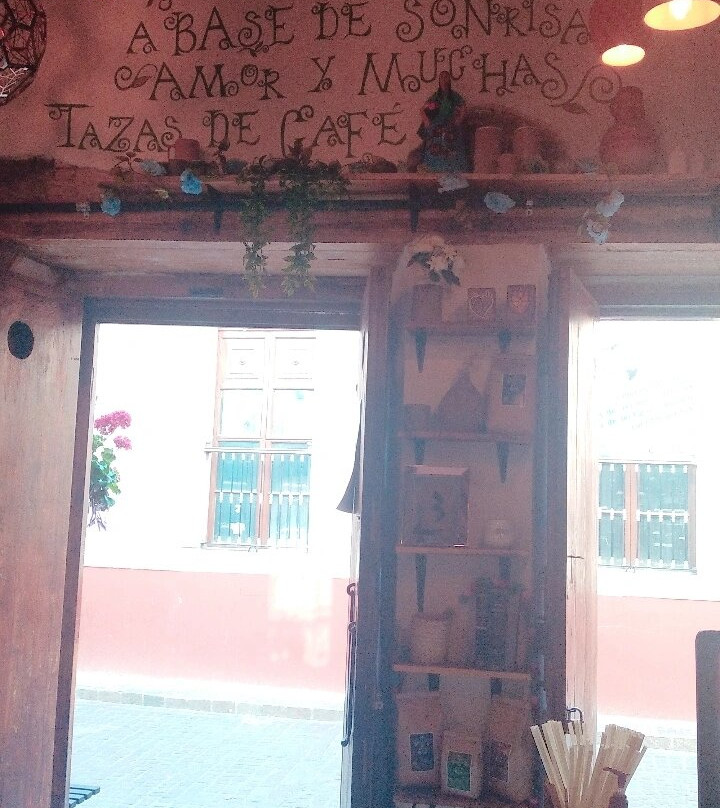 A BASE DE SONRISA
AMOR Y MUCHAS
TAZAS DE CAFÉ